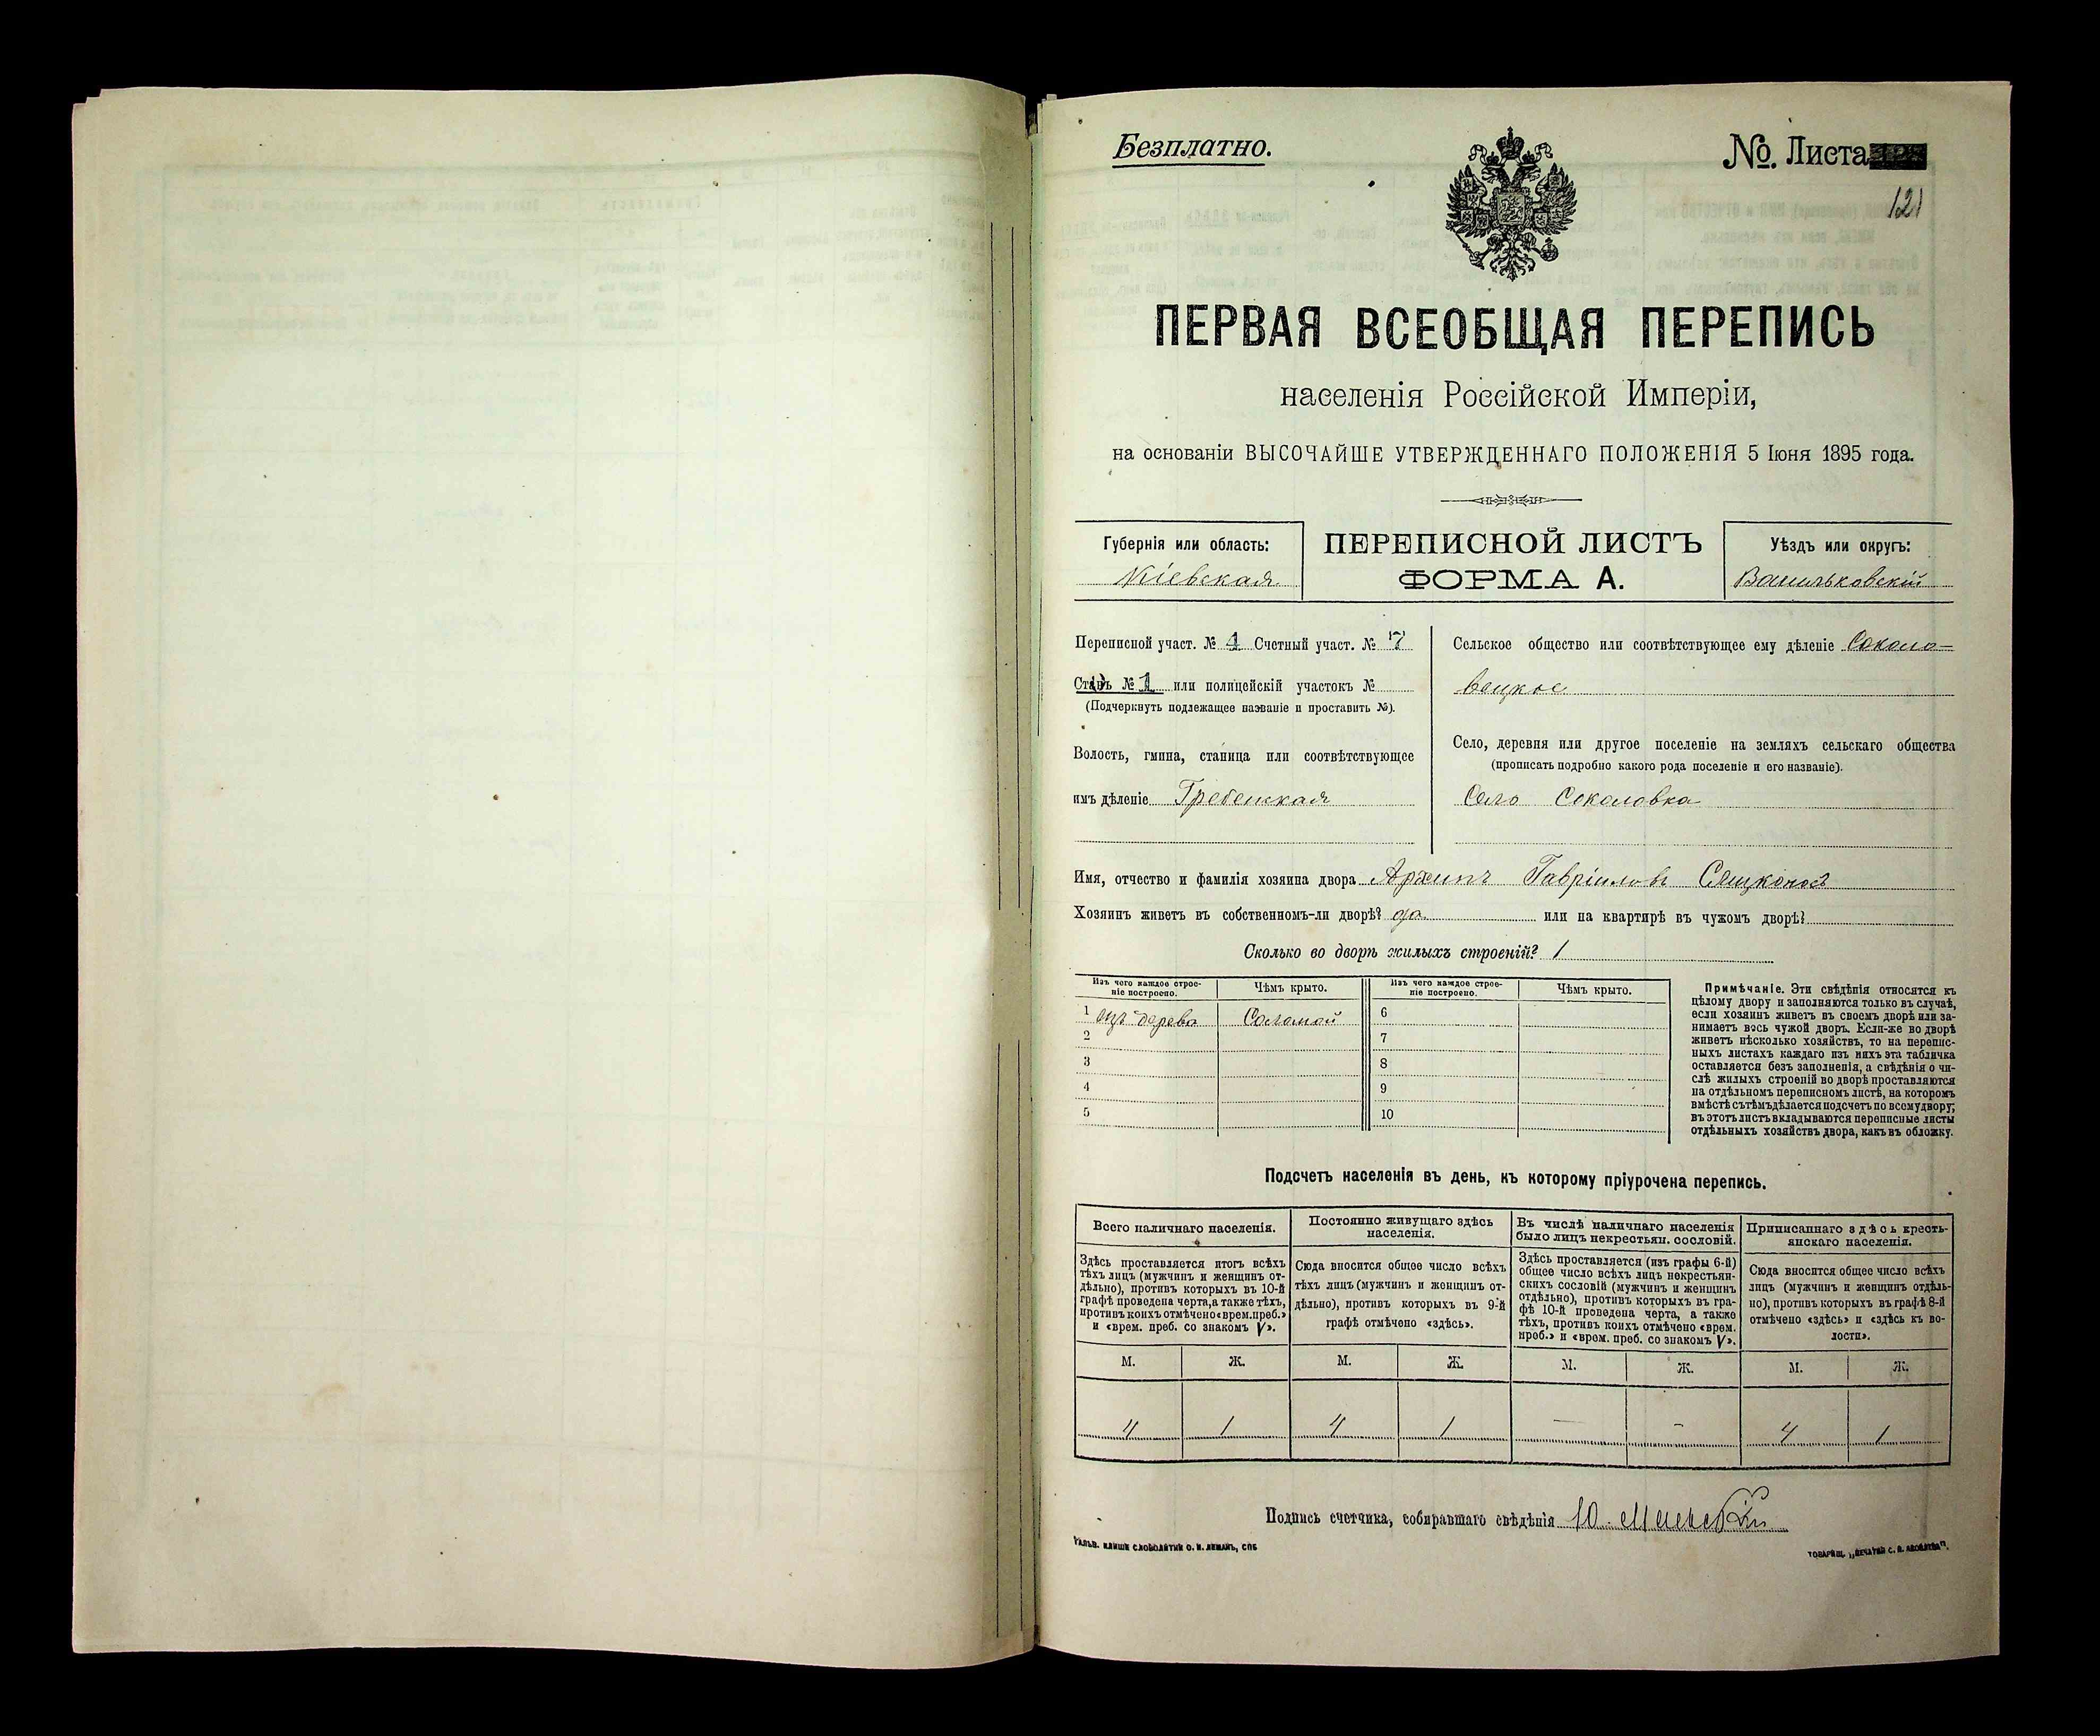 Безплатно.
№ Листа
121
ПЕРВАЯ ВСЕОБЩАЯ ПЕРЕПИСЬ
населенія Россійской Имперіи,
на основаніи ВЫСОЧАЙШЕ УТВЕРЖДЕННАГО ПОЛОЖЕНІЯ 5 Іюня 1895 года.
Губернія или область:
Кіевская
ПЕРЕПИСНОЙ ЛИСТЪ
ФОРМА А.
Уѣздъ или округъ:
Васильковскій
Переписной участ. № 4 Счетный участ. № 7
Станъ № 1 или полицейскій участокъ №
(Подчеркнуть подлежащее названіе и проставить №).
Волость, гмина, станица или соотвѣтствующее
имъ дѣленіе Гребенская
Сельское общество или соотвѣтствующее ему дѣленіе Соколо-
вецкое
Село, деревня или другое поселеніе на земляхъ сельскаго общества
(прописать подробно какого рода поселеніе и его названіе).
Село Соколовка
Имя, отчество и фамилія хозяина двора Архипъ Гавріиловъ
Хозяинъ живетъ въ собственномъ-ли дворѣ? да или на квартирѣ въ чужомъ дворѣ?
Сколько во дворѣ жилыхъ строеній? 1
Изъ чего каждое строе-
ніе построено.
Чѣмъ крыто.
Изъ чего каждое строе-
ніе построено.
Чѣмъ крыто.
1 изъ дерева Соломой 6
2 7
3 8
4 9
5 10
Примѣчаніе. Эти свѣдѣнія относятся къ
цѣлому двору и заполняются только въ случаѣ,
если хозяинъ живетъ въ своемъ дворѣ или за-
нимаетъ весь чужой дворъ. Если-же во дворѣ
живетъ нѣсколько хозяйствъ, то на перепис-
ныхъ листахъ каждаго изъ нихъ эта табличка
оставляется безъ заполненія, а свѣдѣнія о чи-
слѣ жилыхъ строеній во дворѣ проставляются
на отдѣльномъ переписномъ листѣ, на которомъ
вмѣстѣ съ тѣмъ дѣлается подсчетъ по всему двору;
въ этотъ листъ вкладываются переписные листы
отдѣльныхъ хозяйствъ двора, какъ въ обложку.
Подсчетъ населенія въ день, къ которому пріурочена перепись.
Всего наличнаго населенія.
Здѣсь проставляется итогъ всѣхъ
тѣхъ лицъ (мужчинъ и женщинъ от-
дѣльно), противъ которыхъ въ 10-й
графѣ проведена черта, а также тѣхъ,
противъ коихъ отмѣчено «врем. преб.»
и «врем. преб. со знакомъ V».
Постоянно живущаго здѣсь
населенія.
Сюда вносится общее число всѣхъ
тѣхъ лицъ (мужчинъ и женщинъ от-
дѣльно), противъ которыхъ въ 9-й
графѣ отмѣчено «здѣсь».
Въ числѣ наличнаго населенія
было лицъ некрестьян. сословій.
Здѣсь проставляется (изъ графы 6-й)
общее число всѣхъ лицъ некрестьян-
скихъ сословій (мужчинъ и женщинъ
отдѣльно), противъ которыхъ въ гра-
фѣ 10-й проведена черта, а также
тѣхъ, противъ коихъ отмѣчено «врем.
преб.» и «врем. преб. со знакомъ V».
Приписаннаго здѣсь кресть-
янскаго населенія.
Сюда вносится общее число всѣхъ
лицъ (мужчинъ и женщинъ отдѣль-
но), противъ которыхъ въ графѣ 8-й
отмѣчено «здѣсь» и «здѣсь къ во-
лости».
М. Ж. М. Ж. М. Ж. М. Ж.
4 1 4 1 — - 4 1
Подпись счетчика, собиравшаго свѣдѣнія
ГАЛЬВ. КЛИШЕ СЛОВОЛИТНИ О. И. ЛЕМАНЪ, СПБ
ТОВАРИЩ. „ПЕЧАТНЯ С. П. ЯКОВЛЕВА".